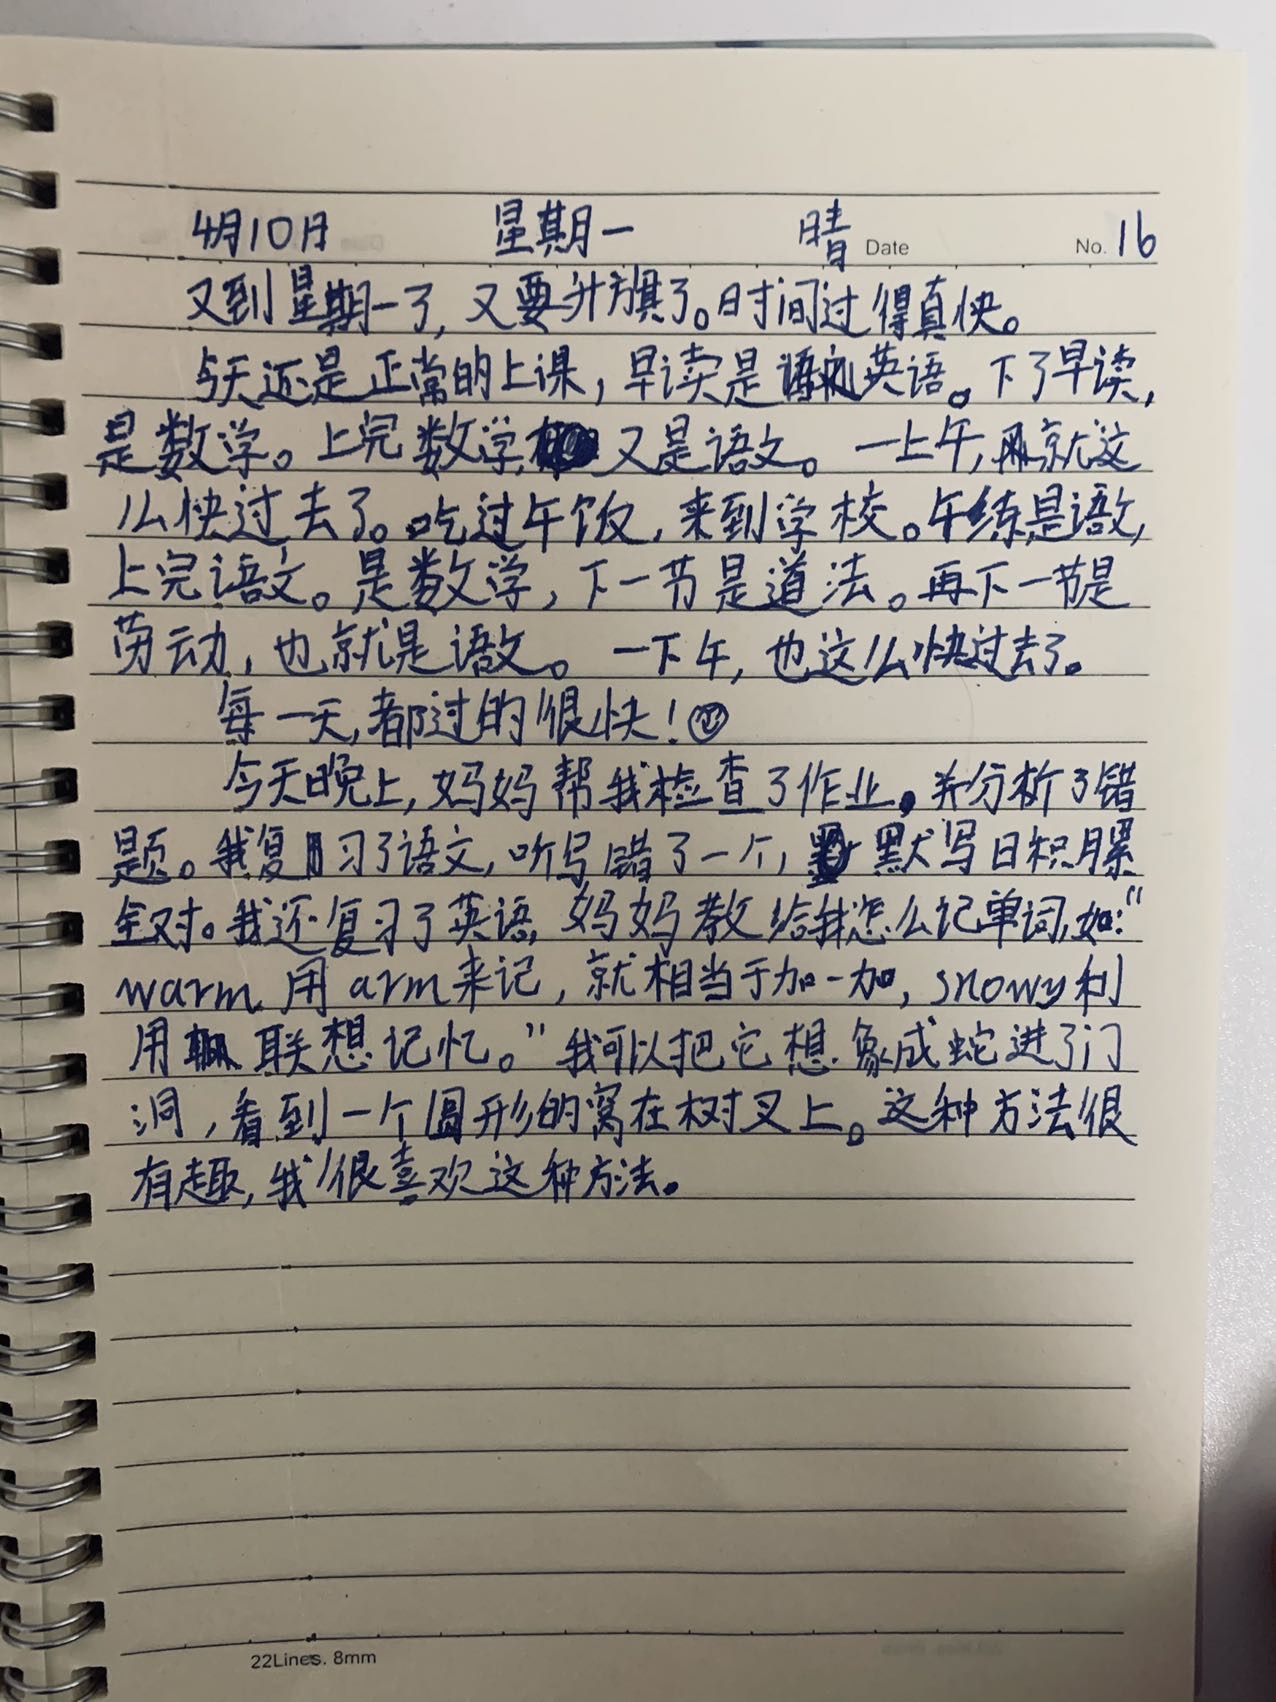 4月10日 星期一 晴 Date No. 16
又到星期一了，又要升旗了。时间过得真快。
今天还是正常的上课，早读是英语。下了早读，
是数学。上完数学，又是语文。一上午，就这
么快过去了。吃过午饭，来到学校。午练是语文，
上完语文。是数学，下一节是道法。再下一节是
劳动，也就是语文。一下午，也这么快过去了。
每一天，都过的很快！
今天晚上，妈妈帮我检查了作业。并分析了错
题。我复习了语文，听写错了一个，默写日积月累
全对。我还复习了英语，妈妈教给我怎么记单词，如：“
warm 用 arm来记，就相当于加一加，snowy利
用联想记忆。”我可以把它想象成蛇进了门
洞，看到一个圆形的窝在树叉上。这种方法很
有趣，我很喜欢这种方法。
22Lines. 8mm